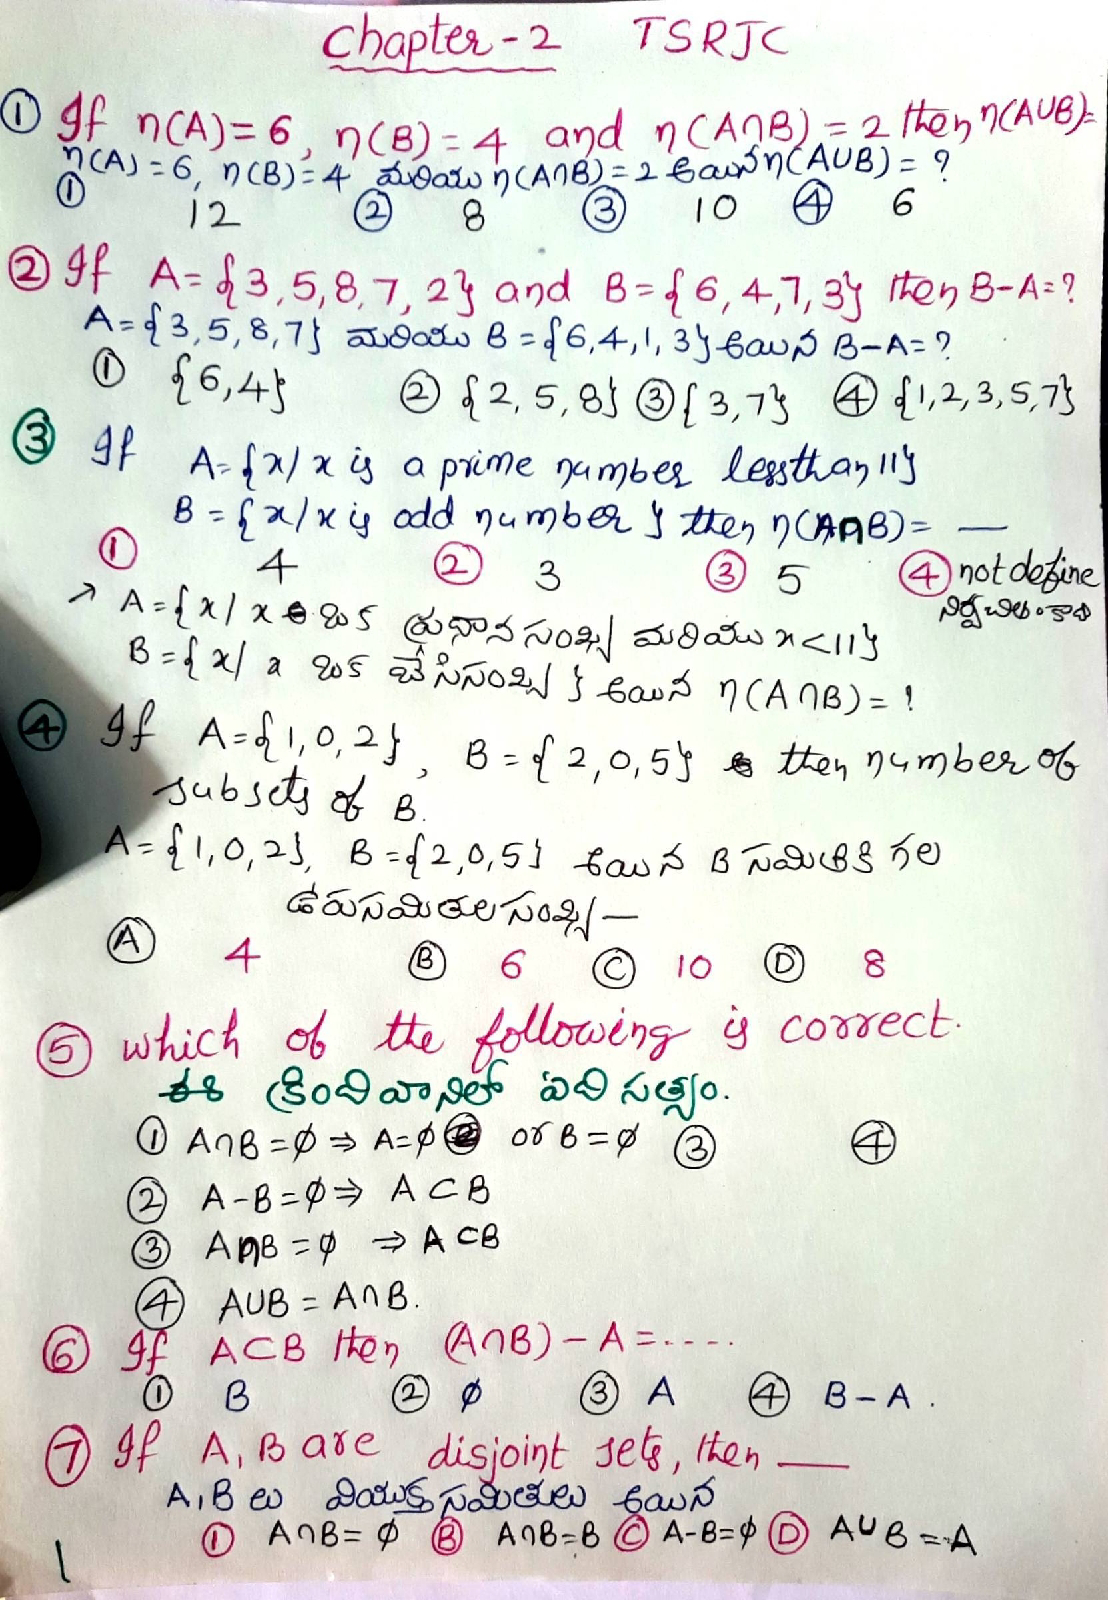 Chapter-2 TSRJC
① If n(A)=6, n(B)=4 and n(A∩B)=2 then n(A∪B)=
n(A)=6, n(B)=4 మరియు n(A∩B)=2 అయిన n(A∪B)=?
① 12 ② 8 ③ 10 ④ 6
② If A={3,5,8,7,2} and B={6,4,7,3} then B-A=?
A={3,5,8,7} మరియు B={6,4,1,3} అయిన B-A=?
① {6,4} ② {2,5,8} ③ {3,7} ④ {1,2,3,5,7}
③ If A={x/x is a prime number lessthan 11}
B={x/x is odd number} then n(A∩B)= —
① 4 ② 3 ③ 5 ④ not define
నిర్వచితం కాదు
→ A={x/x ఒక ప్రధాన సంఖ్య మరియు x<11}
B={x/x ఒక బేసి సంఖ్య} అయిన n(A∩B)=!
④ If A={1,0,2}, B={2,0,5} then number of
subsets of B.
A={1,0,2}, B={2,0,5} అయిన B సమితికి గల
ఉపసమితుల సంఖ్య —
Ⓐ 4 Ⓑ 6 Ⓒ 10 Ⓓ 8
⑤ which of the following is correct.
ఈ క్రింది వానిలో ఏది సత్యం.
① A∩B=∅ ⇒ A=∅ or B=∅ ③ ④
② A-B=∅ ⇒ A⊂B
③ A∩B=∅ ⇒ A⊂B
④ A∪B=A∩B.
⑥ If A⊂B then (A∩B)-A=.....
① B ② ∅ ③ A ④ B-A.
⑦ If A,B are disjoint sets, then —
A,B లు వియుక్త సమితులు అయిన
① A∩B=∅ Ⓑ A∩B=B Ⓒ A-B=∅ Ⓓ A∪B=A
1